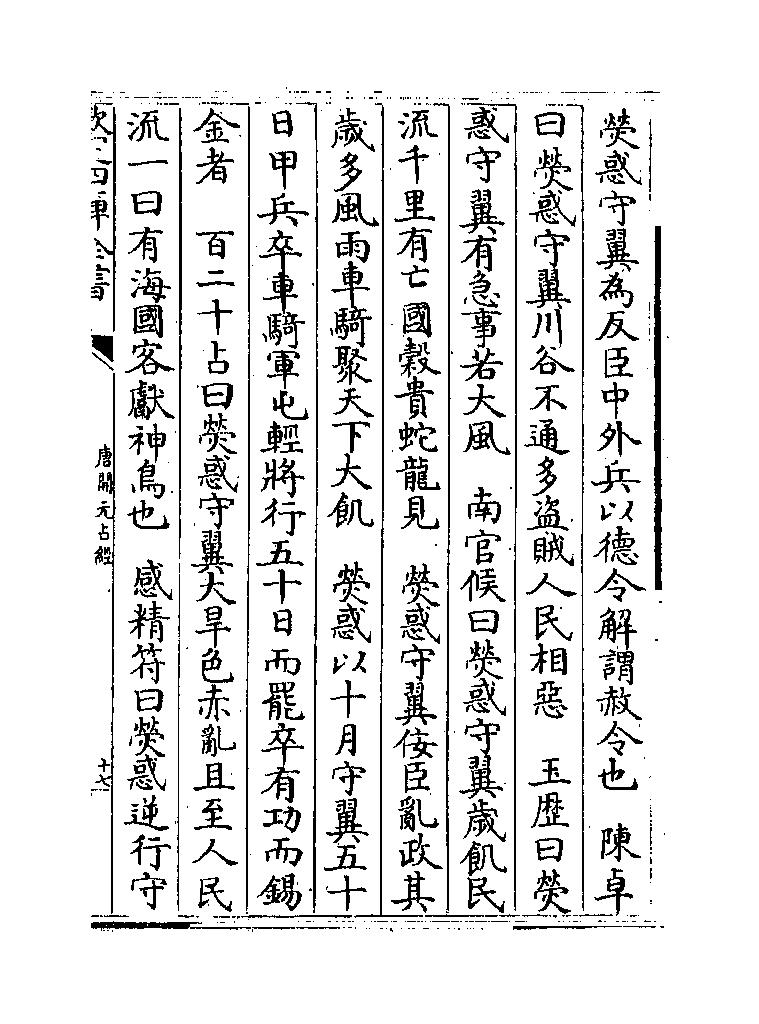 熒惑守翼為反臣中外兵以德令解謂赦令也　陳卓
曰熒惑守翼川谷不通多盜賊人民相惡　玉歴曰熒
惑守翼有急事若大風　南官候曰熒惑守翼歲飢民
流千里有亡國穀貴蛇龍見　熒惑守翼佞臣亂政其
歲多風雨車騎聚天下大飢　熒惑以十月守翼五十
日甲兵卒車騎軍屯輕將行五十日而罷卒有功而錫
金者　百二十占曰熒惑守翼大旱色赤亂且至人民
流一曰有海國客獻神鳥也　感精符曰熒惑逆行守
欽定四庫全書
唐開元占經
十七